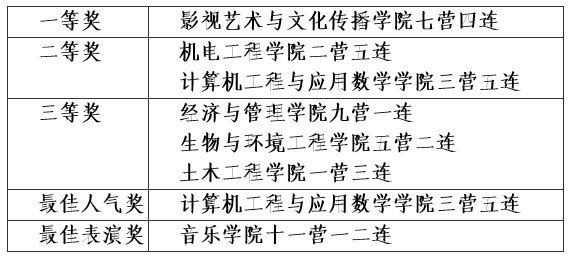 一等奖 影视艺术与文化传播学院七营四连
二等奖 机电工程学院二营五连
计算机工程与应用数学学院三营五连
三等奖 经济与管理学院九营一连
生物与环境工程学院五营二连
土木工程学院一营三连
最佳人气奖 计算机工程与应用数学学院三营五连
最佳表演奖 音乐学院十一营一二连